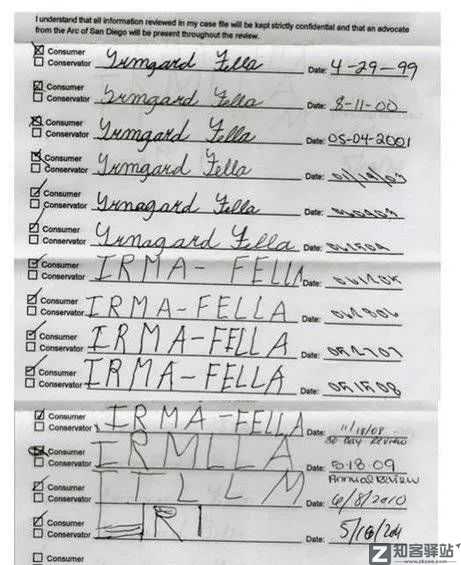 I understand that all information reviewed in my case file will be kept strictly confidential and that an advocate
from the Arc of San Diego will be present throughout the review.
Consumer
Conservator Yrmgard Fella Date: 4-29-99
Consumer
Conservator Yrmgard Fella Date: 8-11-00
Consumer
Conservator Yrmgard Fella Date: 05-04-2001
Consumer
Conservator Yrmgard Fella Date:
Consumer
Conservator Yrnagard Fella Date:
Consumer
Conservator Yrnagard Fella Date:
Consumer
Conservator IRMA- FELLA Date:
Consumer
Conservator IRMA-FELLA Date:
Consumer
Conservator IRMA-FELLA Date:
Consumer
Conservator IRMA-FELLA Date:
Consumer
Conservator IRMA-FELLA Date: 11/18/08
30 DAY REVIEW
Consumer
Conservator IRMLLA Date: 8.18 09
Annual Review
Consumer
Conservator ITLLM Date: 6/8/2010
Consumer
Conservator IRI Date:
Consumer
知客驿站